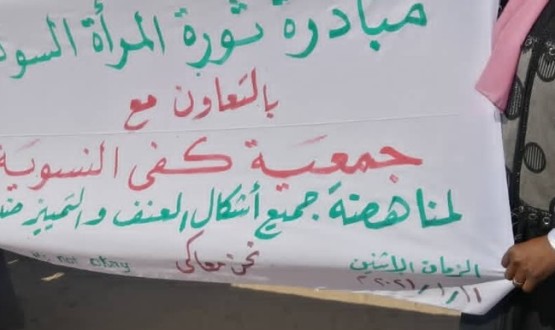 مبادرة ثورة المرأة السود
بالتعاون مع
جمعية كفى النسوية
لمناهضة جميع أشكال العنف والتمييز ضد
not okay نحن معاكي الزمان الإثنين
٢٠٢١/١/١١م